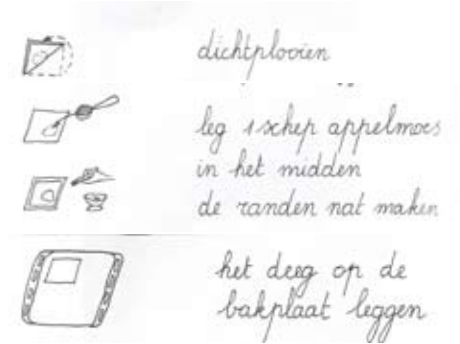 dichtplooien
leg 1 schep appelmoes
in het midden
de randen nat maken
het deeg op de
bakplaat leggen